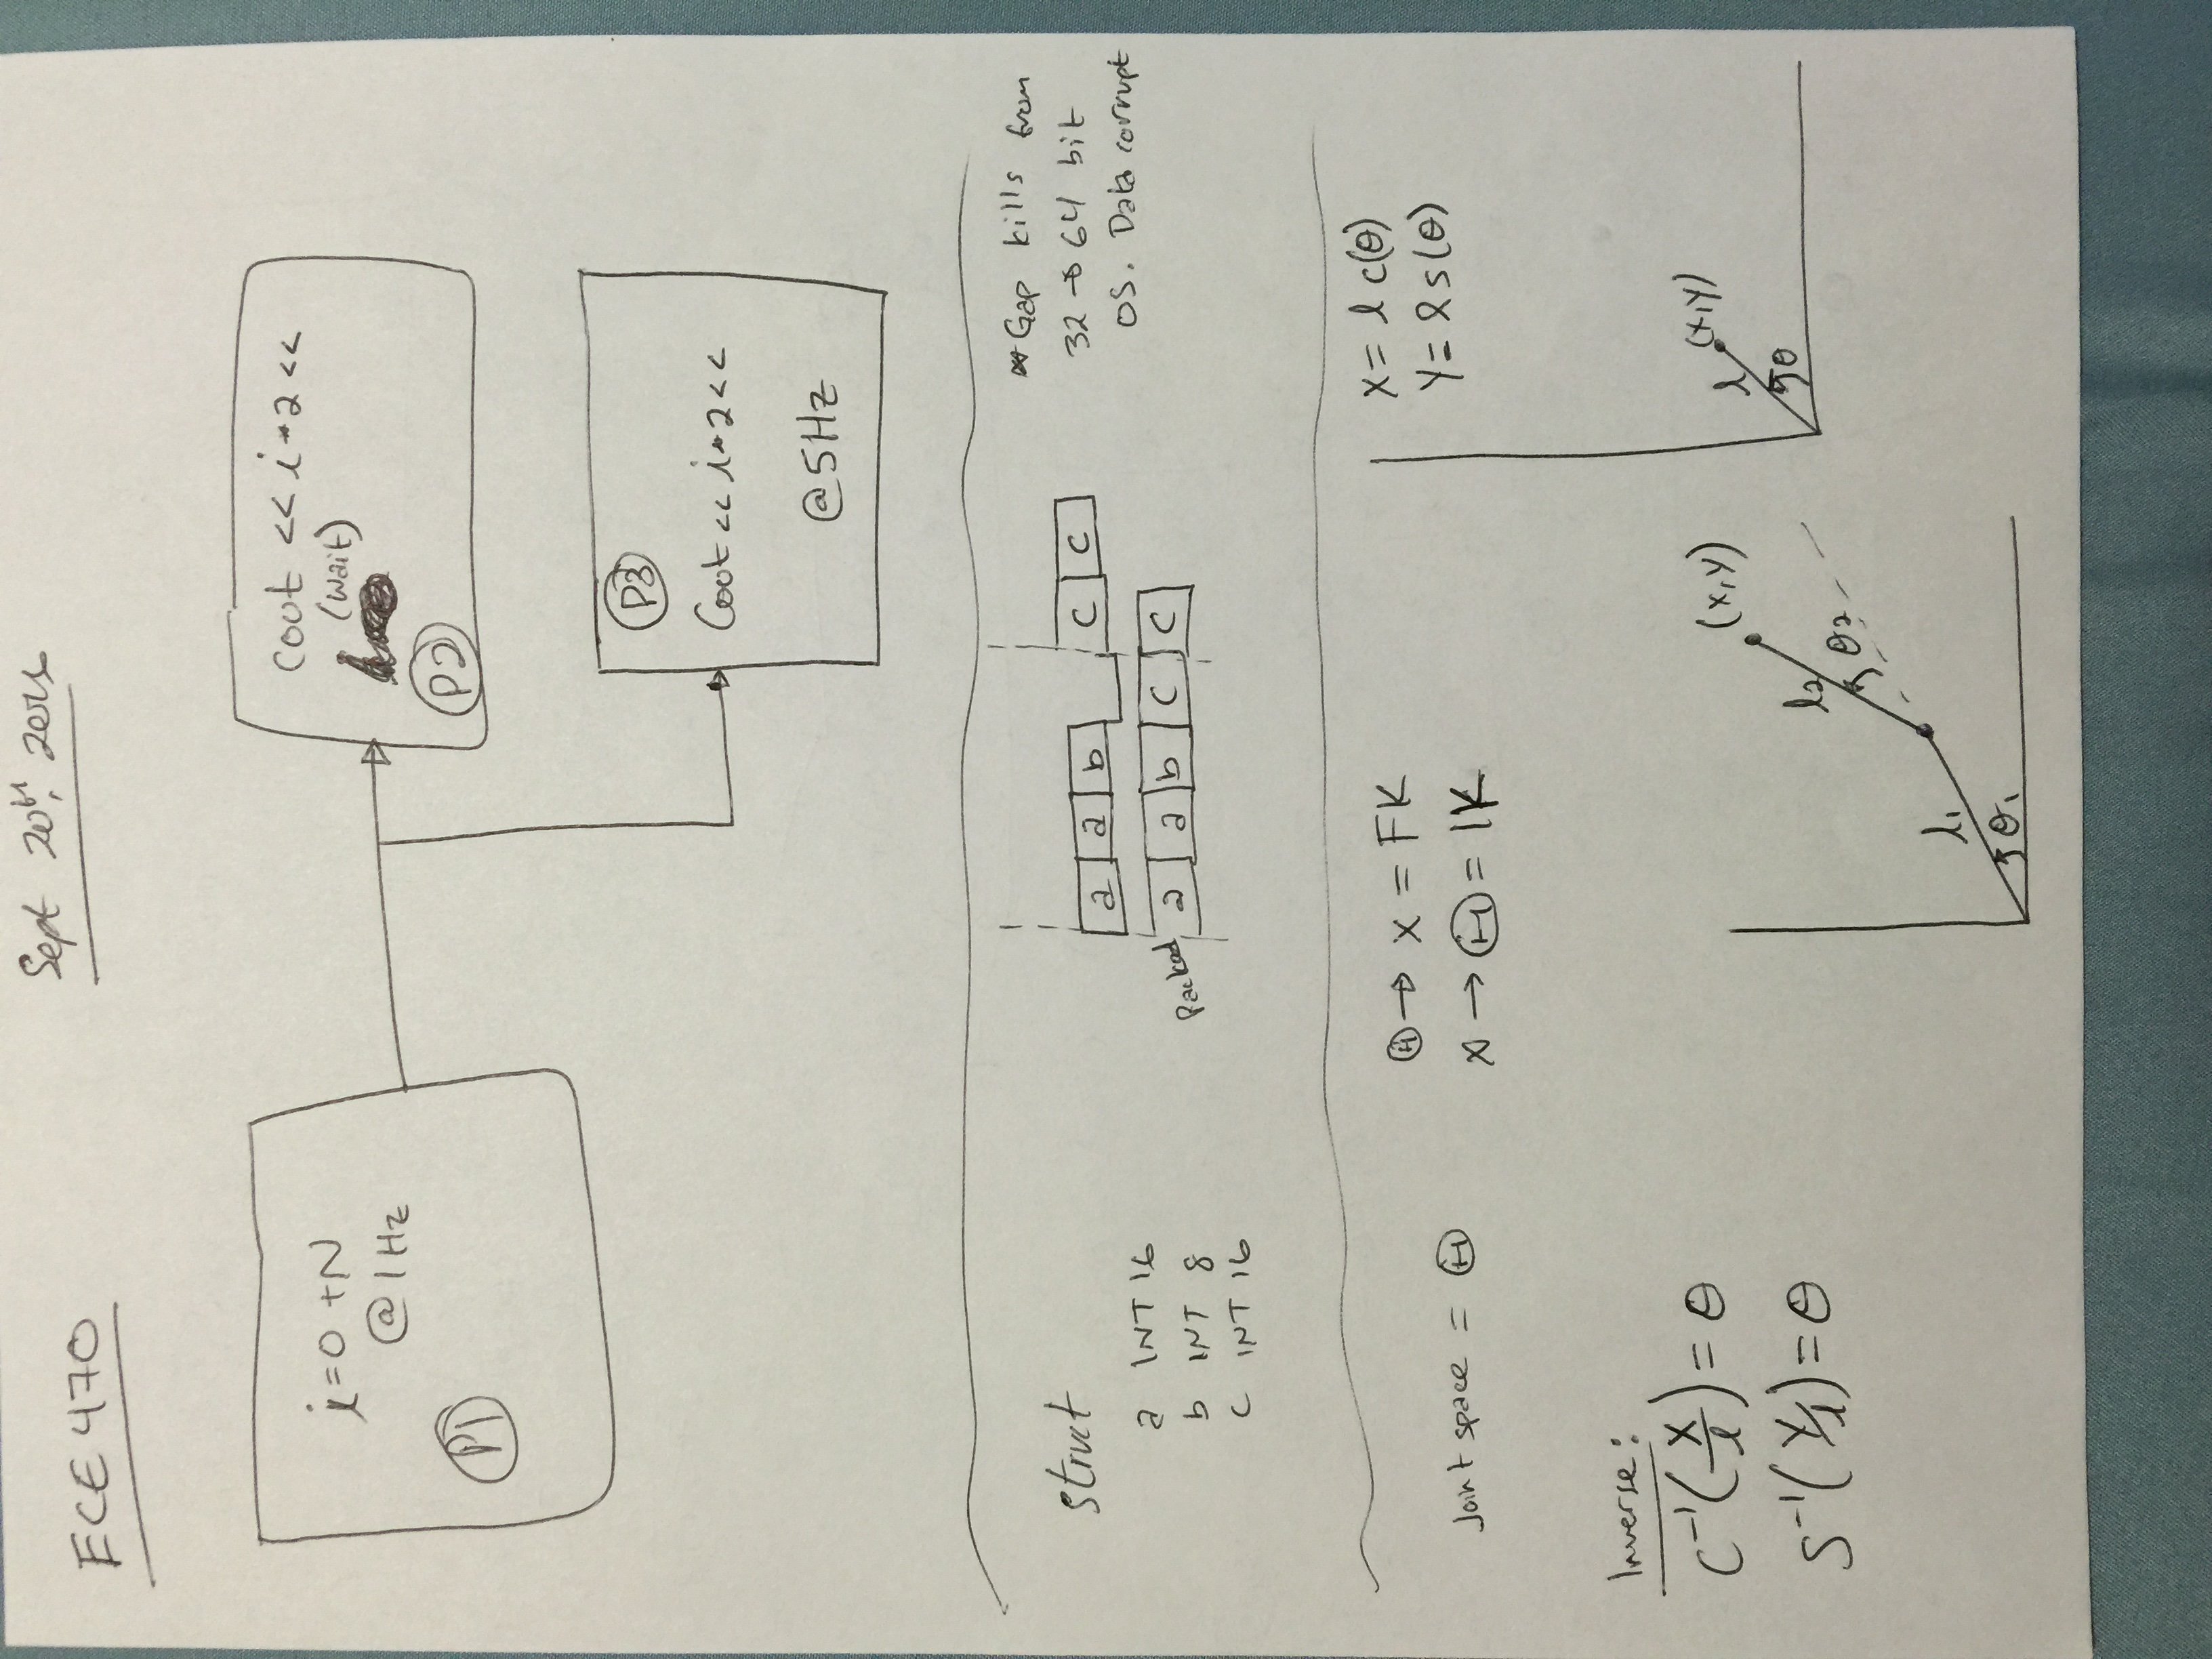 ECE 470
Sept 20th,
i=0 +N
@1Hz
P1
Cout << i*2 <<
(wait)
P2
P3
Cout << i*2 <<
@5Hz
struct
a INT 16
b INT 8
c INT 16
a a b c c
Packed a a b c c
* Gap kills from
32 → 64 bit
OS. Data corrupt
Joint space = Θ
Θ → x = FK
x → Θ = IK
x = l c(θ)
y = l s(θ)
Inverse:
c⁻¹(x/l) = θ
s⁻¹(y/l) = θ
(x,y)
l2
θ2
l1
θ1
(x,y)
l
θ